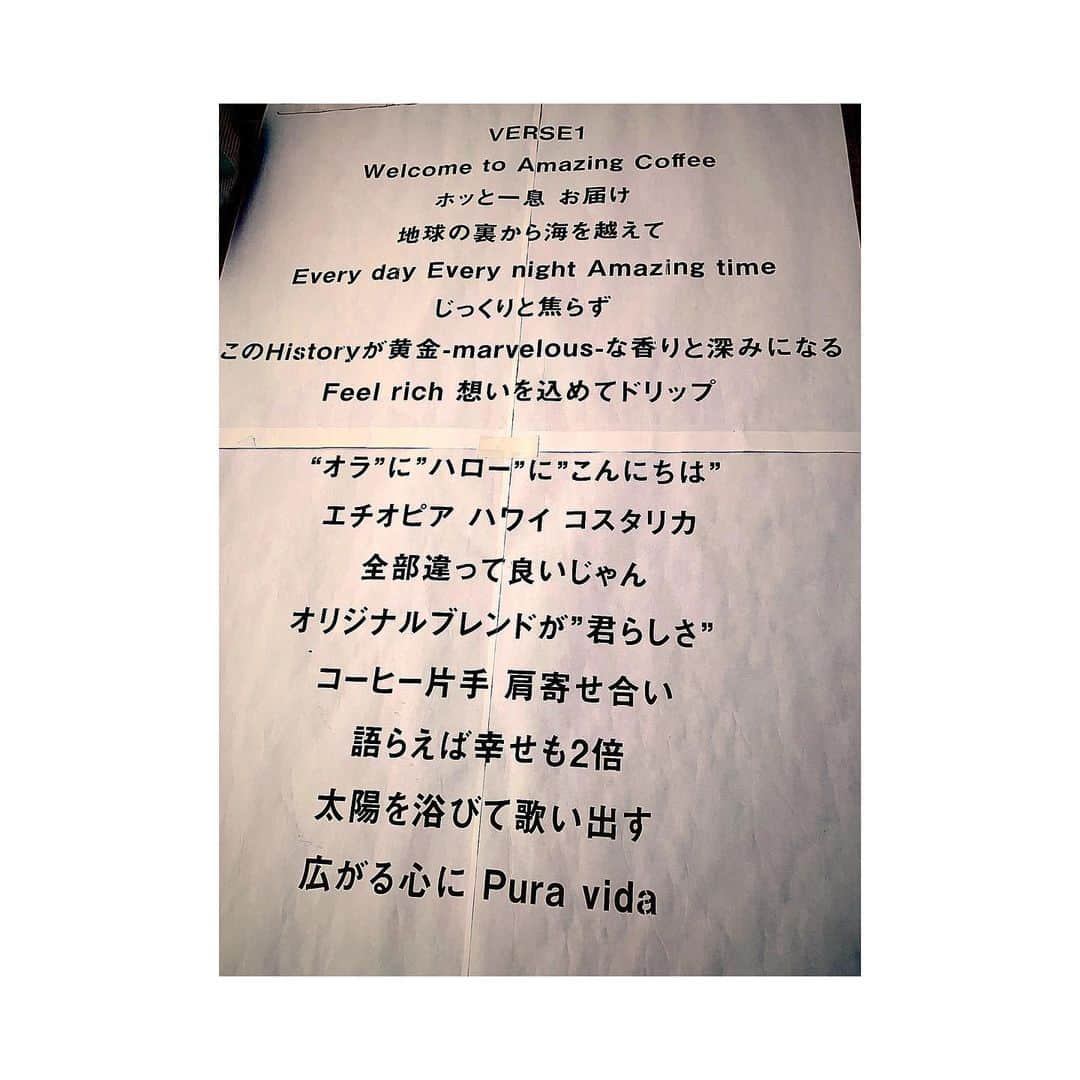 VERSE1
Welcome to Amazing Coffee
ホッと一息 お届け
地球の裏から海を越えて
Every day Every night Amazing time
じっくりと焦らず
このHistoryが黄金-marvelous-な香りと深みになる
Feel rich 想いを込めてドリップ
“オラ”に”ハロー”に”こんにちは”
エチオピア ハワイ コスタリカ
全部違って良いじゃん
オリジナルブレンドが”君らしさ”
コーヒー片手 肩寄せ合い
語らえば幸せも2倍
太陽を浴びて歌い出す
広がる心に Pura vida